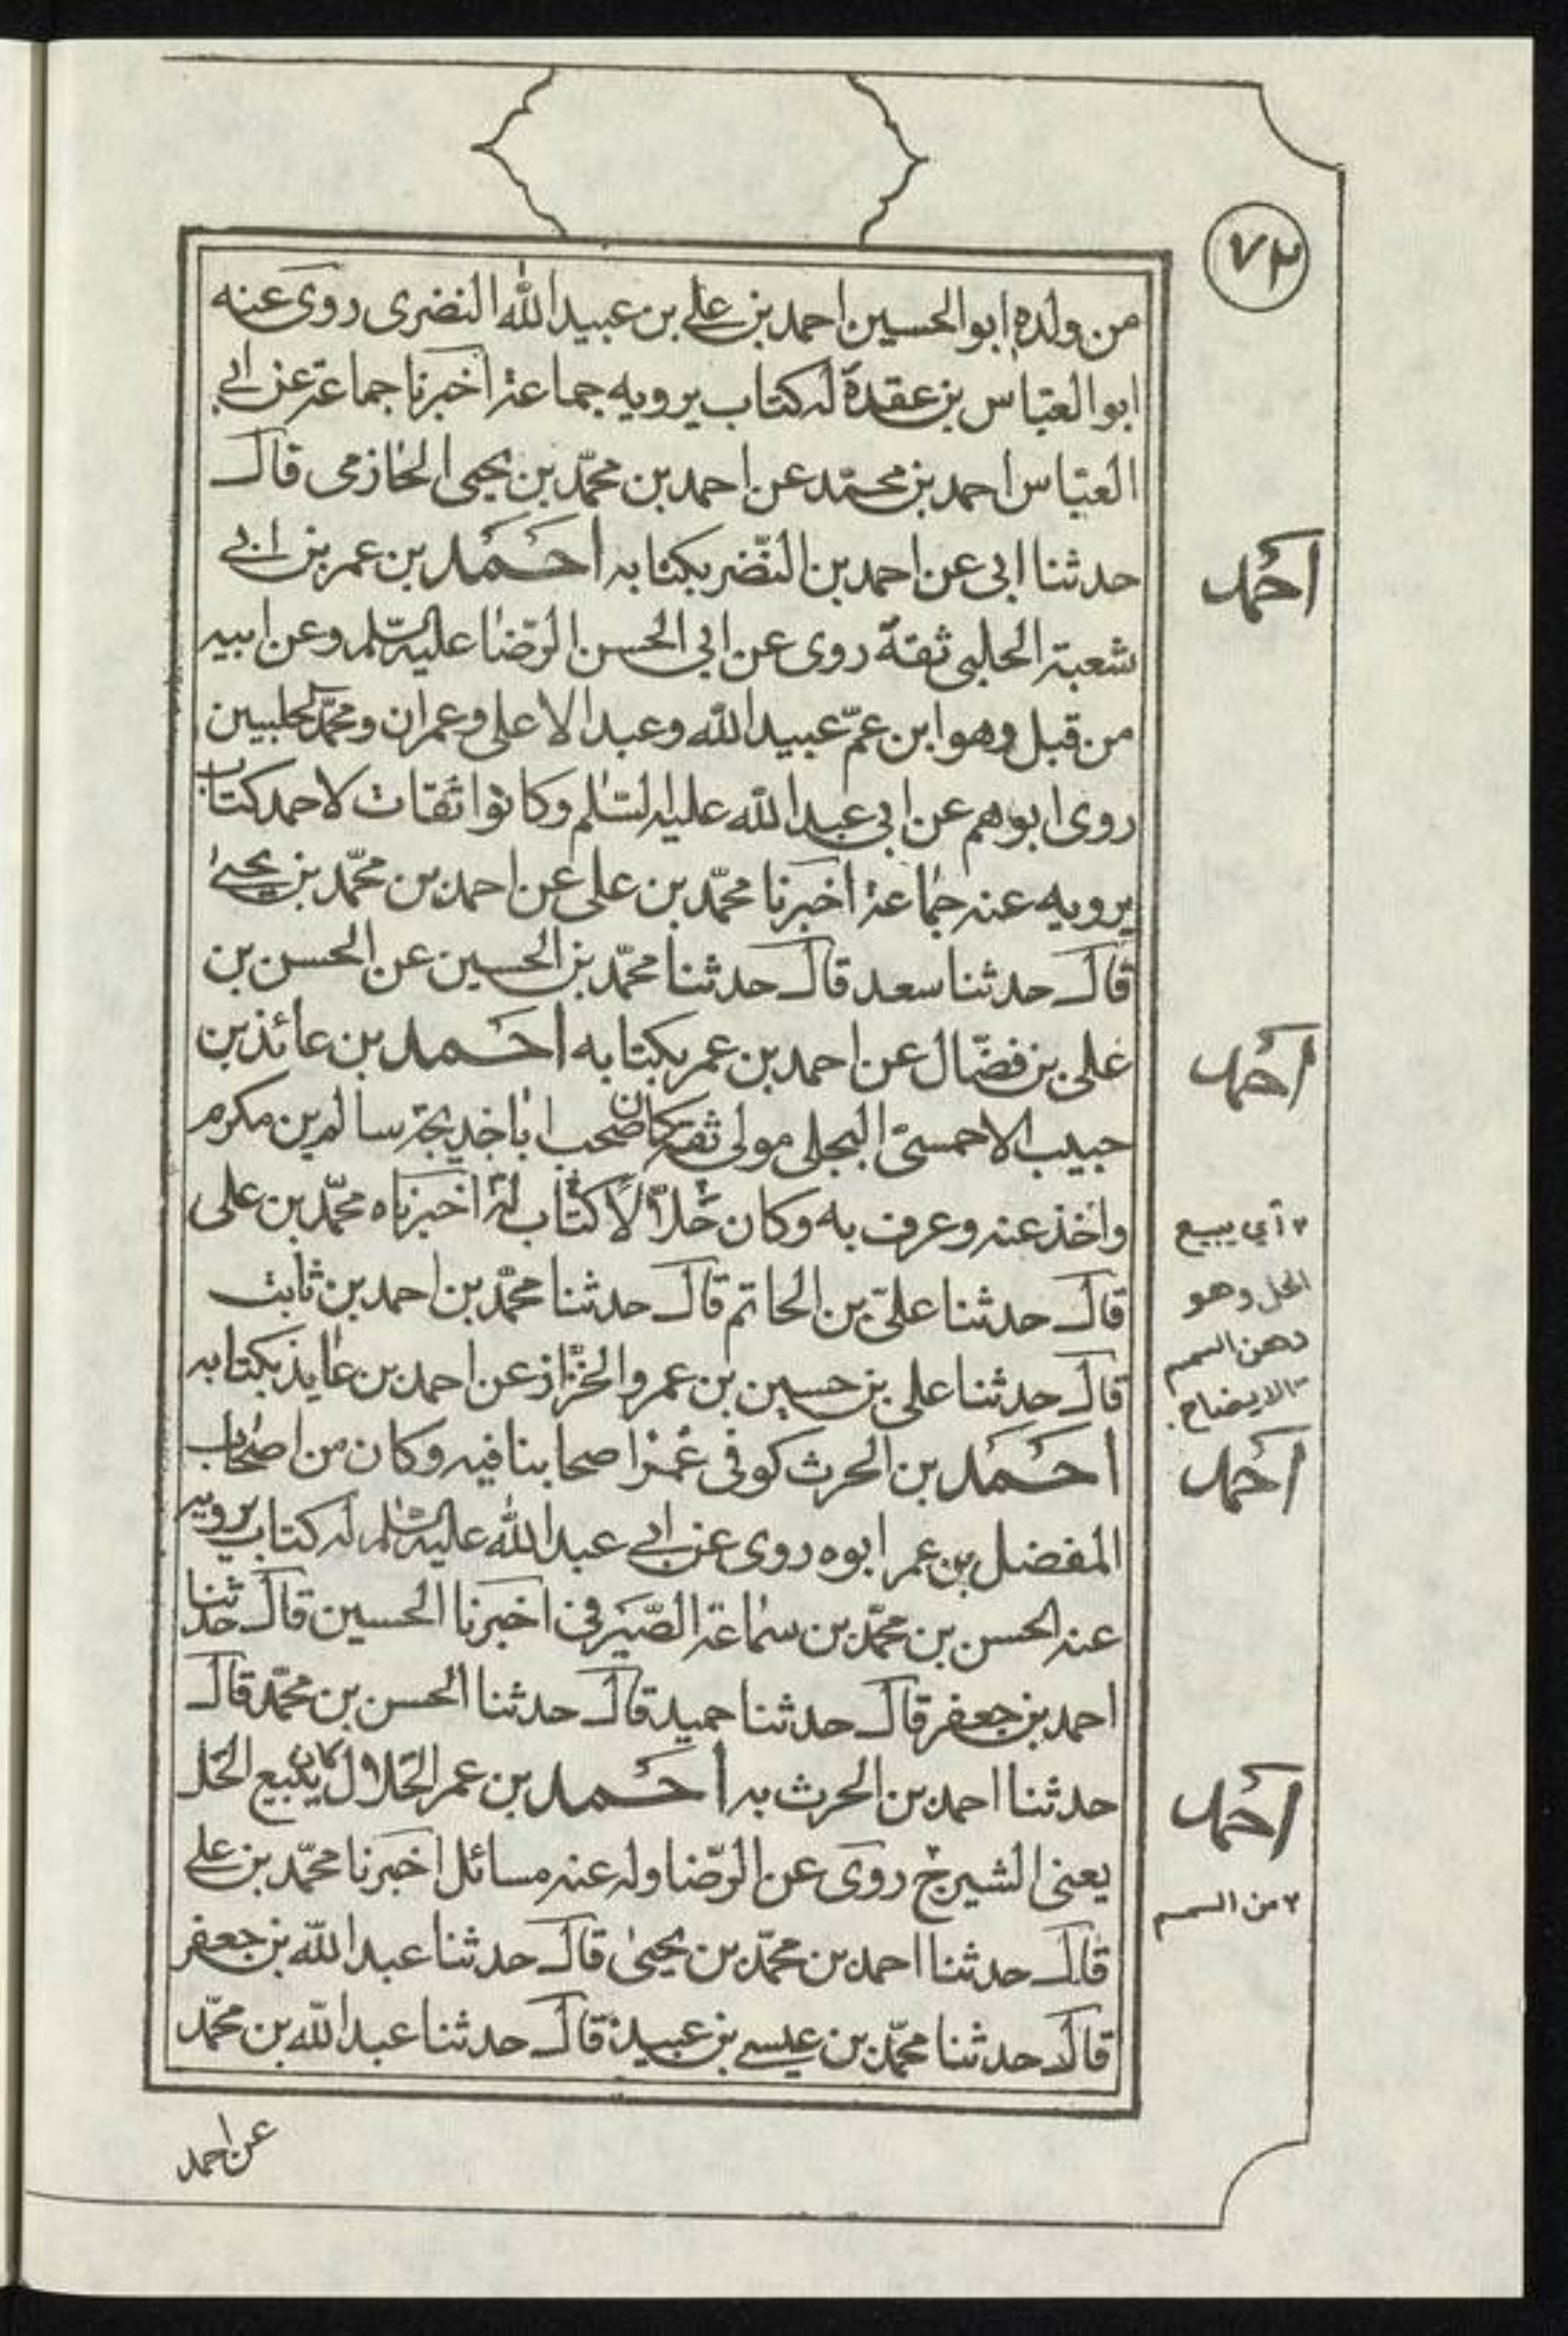 ٧٢
من ولده ابو الحسين احمد بن علي بن عبيد الله النضرى روى عنه
ابو العباس بن عقدة له كتاب يرويه جماعة اخبرنا جماعة عن ابي
العباس احمد بن محمد عن احمد بن محمّد بن يحيى الحازمى قال
حدثنا ابى عن احمد بن النّضر بكتابه احمد بن عمر بن ابي
شعبة الحلبى ثقة روى عن ابى الحسن الرّضا عليه السّلم وعن ابيه
من قبل وهو ابن عمّ عبيد الله وعبد الاعلى وعمران ومحمّد الحلبيين
روى ابوهم عن ابى عبد الله عليه السّلم وكانوا ثقات لاحمد كتاب
يرويه عنه جماعة اخبرنا محمّد بن على عن احمد بن محمّد بن يحيى
قال حدثنا سعد قال حدثنا محمّد بن الحسين عن الحسن بن
على بن فضّال عن احمد بن عمر بكتابه احمد بن عائذ بن
حبيب الاحمسىّ البجلى مولى ثقة كان صحب ابا خديجة سالم بن مكرم
واخذ عنه وعرف به وكان حلّالا كتاب له اخبرناه محمّد بن على
قال حدثنا علىّ بن الحاتم قال حدثنا محمّد بن احمد بن ثابت
قال حدثنا على بن حسين بن عمرو الخزّاز عن احمد بن عايذ بكتابه
احمد بن الحرث كوفى غمز اصحابنا فيه وكان من اصحاب
المفضل بن عمر ابوه روى عن ابي عبد الله عليه السّلم له كتاب يرويه
عنه الحسن بن محمّد بن سماعة الصّيرفى اخبرنا الحسين قال حدثنا
احمد بن جعفر قال حدثنا حميد قال حدثنا الحسن بن محمّد قال
حدثنا احمد بن الحرث به احمد بن عمر الحلال كان يبيع الحل
يعنى الشيرج روى عن الرّضا وله عنه مسائل اخبرنا محمّد بن علي
قال حدثنا احمد بن محمّد بن يحيى قال حدثنا عبد الله بن جعفر
قال حدثنا محمّد بن عيسى بن عبيد قال حدثنا عبد الله بن محمّد
عن احمد
احمد
احمد
٢ أي يبيع
الحل وهو
دهن السمسم
الايضاح
احمد
احمد
٢ من السمسم